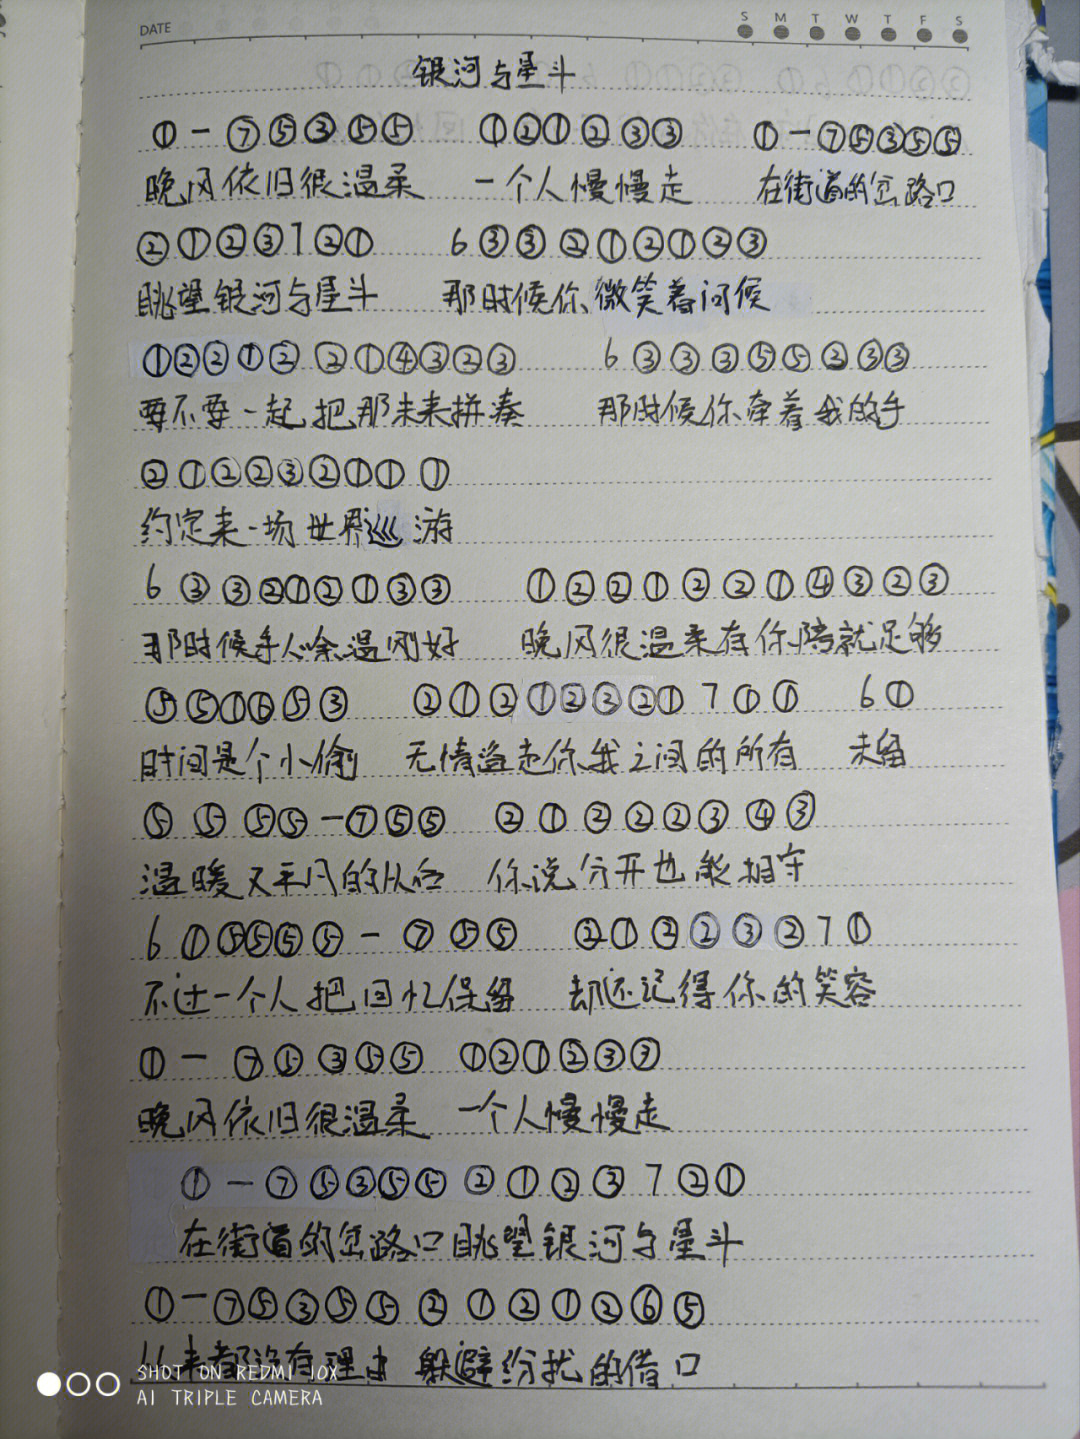 DATE S M T W T F S
银河与星斗
①－⑦⑤③⑤⑤ ①②①②③③ ①－⑦⑤③⑤⑤
晚风依旧很温柔 一个人慢慢走 在街道的岔路口
②①②③7②① 6③③②①②①②③
眺望银河与星斗 那时候你微笑着问候
①②②①②②①④③②③ 6③③③⑤⑤②③③
要不要一起把那未来拼凑 那时候你牵着我的手
②①②②③②①①①
约定来一场世界巡游
6③③②①②①③③ ①②②①②②①④③②③
那时候手心余温刚好 晚风很温柔有你陪就足够
⑤⑤①⑥⑤③ ②①②①②③②①7①① 6①
时间是个小偷 无情盗走你我之间的所有 未留
⑤⑤⑤⑤－⑦⑤⑤ ②①②②②③④③
温暖又平凡的以后 你说分开也能相守
6①⑤⑤⑤⑤－⑦⑤⑤ ②①②②③②7①
不过一个人把回忆保留 却还记得你的笑容
①－⑦⑤③⑤⑤ ①②①②③③
晚风依旧很温柔 一个人慢慢走
①－⑦⑤③⑤⑤②①②③7②①
在街道的岔路口眺望银河与星斗
①－⑦⑤③⑤⑤②①②①②⑥⑤
从来都没有理由 躲避纷扰的借口
SHOT ON REDMI 10X
AI TRIPLE CAMERA